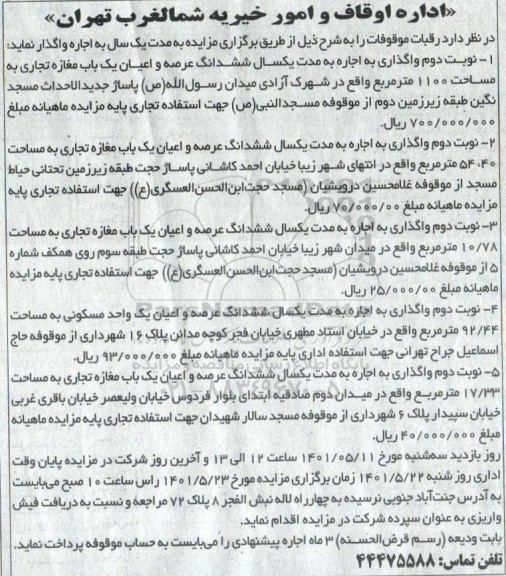 «اداره اوقاف و امور خیریه شمالغرب تهران»
در نظر دارد رقبات موقوفات را به شرح ذیل از طریق برگزاری مزایده به مدت یک سال به اجاره واگذار نماید:
۱- نوبت دوم واگذاری به اجاره به مدت یکسال ششدانگ عرصه و اعیان یک باب مغازه تجاری به
مساحت ۱۱۰۰ مترمربع واقع در شهرک آزادی میدان رسول‌الله(ص) پاساژ جدیدالاحداث مسجد
نگین طبقه زیرزمین دوم از موقوفه مسجدالنبی(ص) جهت استفاده تجاری پایه مزایده ماهیانه مبلغ
۷۰۰/۰۰۰/۰۰۰ ریال.
۲- نوبت دوم واگذاری به اجاره به مدت یکسال ششدانگ عرصه و اعیان یک باب مغازه تجاری به مساحت
۵۴،۴۰ مترمربع واقع در انتهای شهر زیبا خیابان احمد کاشانی پاساژ حجت طبقه زیرزمین تحتانی حیاط
مسجد از موقوفه غلامحسین درویشیان (مسجد حجت‌ابن‌الحسن‌العسگری(ع)) جهت استفاده تجاری پایه
مزایده ماهیانه مبلغ ۷۰/۰۰۰/۰۰ ریال.
۳- نوبت دوم واگذاری به اجاره به مدت یکسال ششدانگ عرصه و اعیان یک باب مغازه تجاری به مساحت
۱۰/۷۸ مترمربع واقع در میدان شهر زیبا خیابان احمد کاشانی پاساژ حجت طبقه سوم روی همکف شماره
۵ از موقوفه غلامحسین درویشیان (مسجد حجت‌ابن‌الحسن‌العسگری(ع)) جهت استفاده تجاری پایه مزایده
ماهیانه مبلغ ۲۵/۰۰۰/۰۰ ریال.
۴- نوبت دوم واگذاری به اجاره به مدت یکسال ششدانگ عرصه و اعیان یک واحد مسکونی به مساحت
۹۲/۴۴ مترمربع واقع در خیابان استاد مطهری خیابان فجر کوچه مدائن پلاک ۱۶ شهرداری از موقوفه حاج
اسماعیل جراح تهرانی جهت استفاده اداری پایه مزایده ماهیانه مبلغ ۹۳/۰۰۰/۰۰۰ ریال.
۵- نوبت دوم واگذاری به اجاره به مدت یکسال ششدانگ عرصه و اعیان یک باب مغازه تجاری به مساحت
۱۷/۳۳ مترمربع واقع در میدان دوم صادقیه ابتدای بلوار فردوس خیابان ولیعصر خیابان باقری غربی
خیابان سپیدار پلاک ۶ شهرداری از موقوفه مسجد سالار شهیدان جهت استفاده تجاری پایه مزایده ماهیانه
مبلغ ۴۰/۰۰۰/۰۰۰ ریال.
روز بازدید سه‌شنبه مورخ ۱۴۰۱/۰۵/۱۱ ساعت ۱۲ الی ۱۳ و آخرین روز شرکت در مزایده پایان وقت
اداری روز شنبه ۱۴۰۱/۵/۲۲ زمان برگزاری مزایده مورخ ۱۴۰۱/۵/۲۳ راس ساعت ۱۰ صبح می‌بایست
به آدرس جنت‌آباد جنوبی نرسیده به چهارراه لاله نبش الفجر ۸ پلاک ۷۲ مراجعه و نسبت به دریافت فیش
واریزی به عنوان سپرده شرکت در مزایده اقدام نماید.
بابت ودیعه (رسم قرض‌الحسنه) ۳ ماه اجاره پیشنهادی را می‌بایست به حساب موقوفه پرداخت نماید.
تلفن تماس: ۴۴۴۷۵۵۸۸